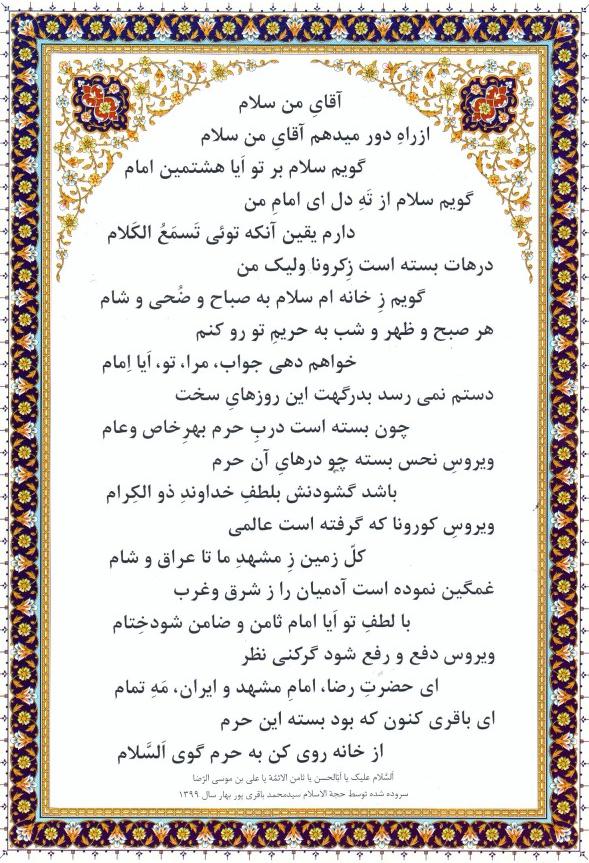 آقایِ من سلام
ازراهِ دور میدهم آقایِ من سلام
گویم سلام بر تو اَیا هشتمین امام
گویم سلام از تَهِ دل ای امامِ من
دارم یقین آنکه توئی تَسمَعُ الکَلام
درهات بسته است زِکرونا ولیک من
گویم زِ خانه ام سلام به صباح و ضُحی و شام
هر صبح و ظهر و شب به حریمِ تو رو کنم
خواهم دهی جواب، مرا، تو، اَیا اِمام
دستم نمی رسد بدرگهت این روزهایِ سخت
چون بسته است دربِ حرم بهرِخاص وعام
ویروسِ نحس بسته چو درهایِ آن حرم
باشد گشودنش بلطفِ خداوندِ ذو الکِرام
ویروسِ کورونا که گرفته است عالمی
کلّ زمین زِ مشهدِ ما تا عراق و شام
غمگین نموده است آدمیان را ز شرق وغرب
با لطفِ تو اَیا امام ثامن و ضامن شودخِتام
ویروس دفع و رفع شود گرکنی نظر
ای حضرتِ رضا، امامِ مشهد و ایران، مَهِ تمام
ای باقری کنون که بود بسته این حرم
از خانه روی کن به حرم گوی اَلسَّلام
اَلسَّلام علیک یا اَبَاالحسن یا ثامن الائمّة یا علی بن موسی الرّضا
سروده شده توسط حجة الاسلام سیدمحمد باقری پور بهار سال ۱۳۹۹